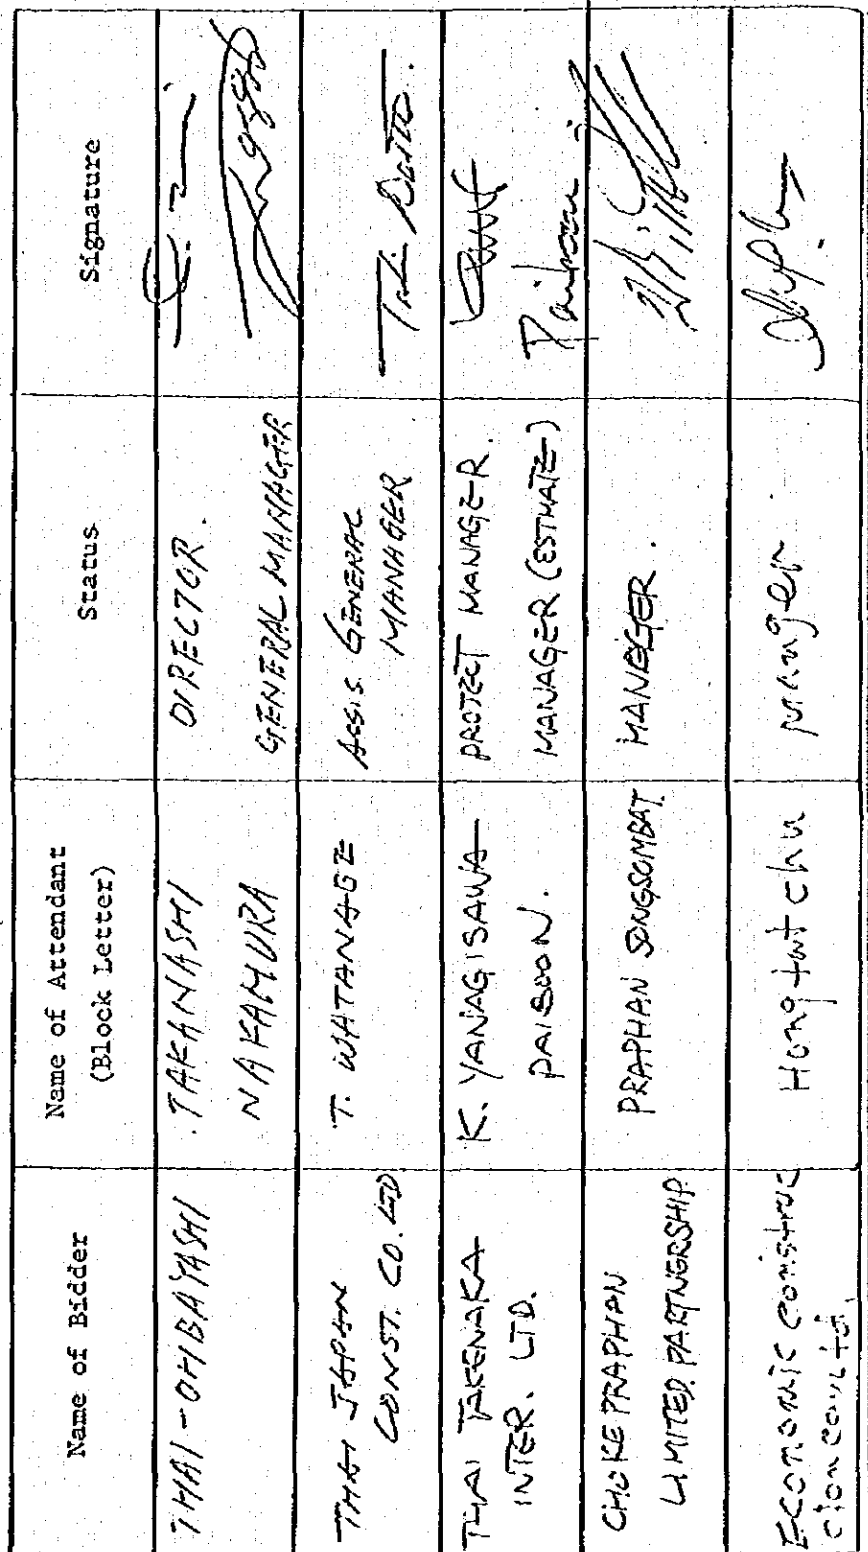 Name of Bidder
Name of Attendant
(Block Letter)
Status
Signature
THAI-OHBAYASHI
TAKANASHI
DIRECTOR.
NAKAMURA
GENERAL MANAGER
THAI JAPAN
CONST. CO. LTD
T. WATANABE
Assis. GENERAL
MANAGER
THAI TAKENAKA
INTER. LTD.
K. YANAGISAWA
PROJECT MANAGER.
PAIBOON.
MANAGER (ESTMATE)
Paiboon
CHOKE PRAPHAN
LIMITED PARTNERSHIP
PRAPHAN SONGSOMBAT
MANEGER.
Economic construc
Hong tat chu
Manger